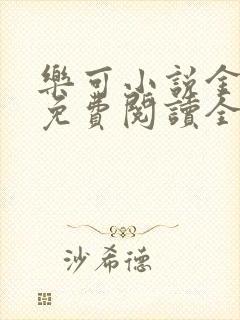 樂可小說全
免費閱讀全
沙希德